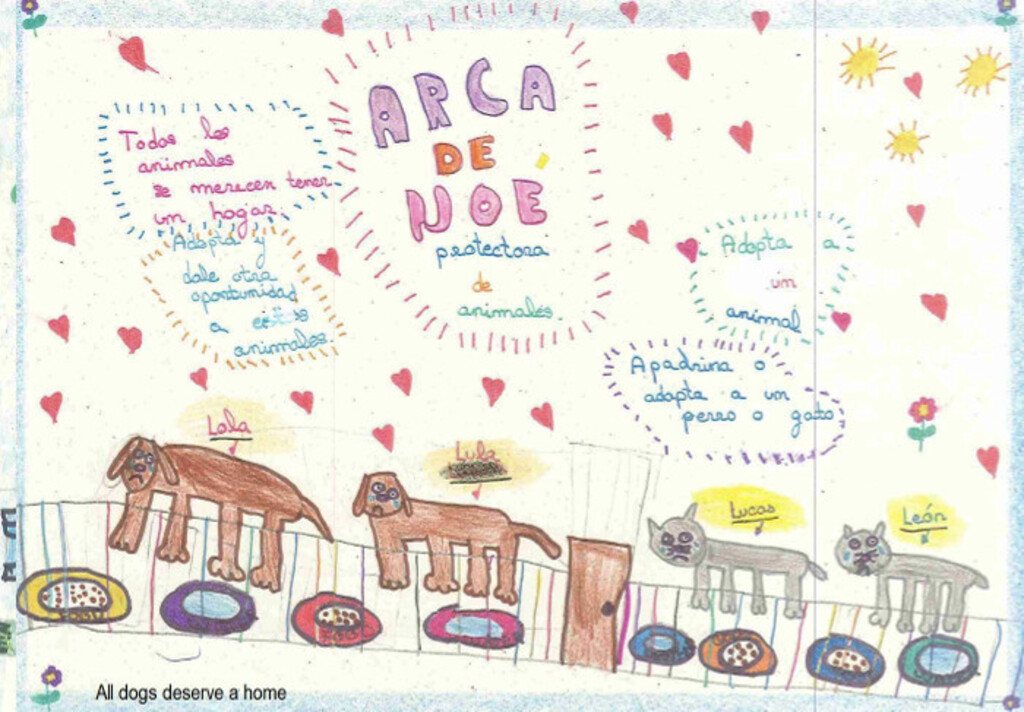 ARCA
DE
NOE
protectora
de
animales.
Todos los
animales
se merecen tener
un hogar.
Adopta y
dale otra
oportunidad
a estos
animales.
Adopta a
un
animal
Apadrina o
adopta a un
perro o gato
Lola
Lula
Lucas
León
All dogs deserve a home